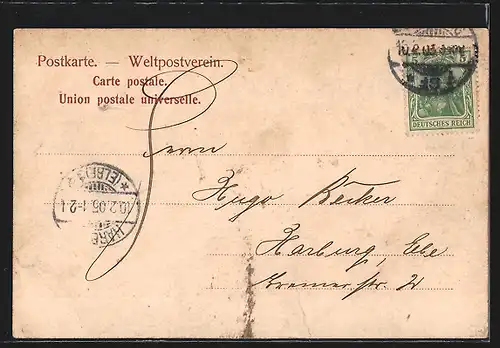 Postkarte. — Weltpostverein.
Carte postale.
Union postale universelle.
10.2.05
5 5
DEUTSCHES REICH
Herrn
Hugo Becker
Harburg, Elbe
Bremer str. 2
HARB
10.2.05.1-2N
(ELBE)